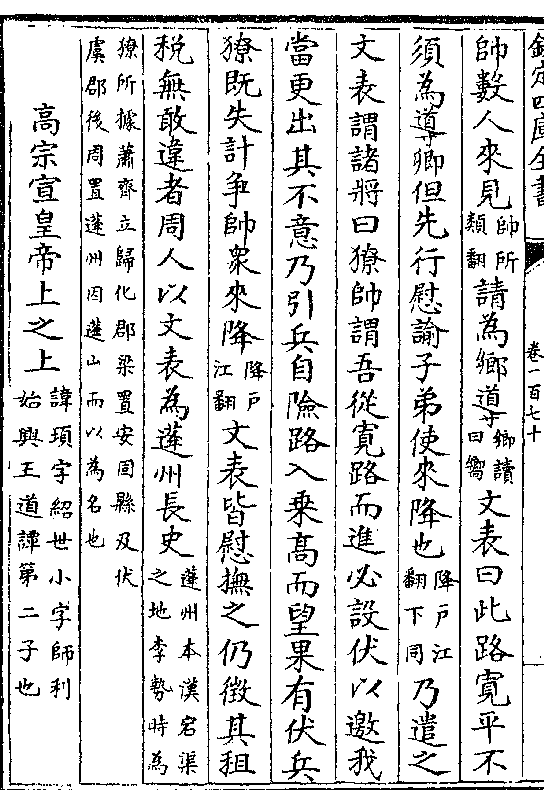 欽定四庫全書
卷一百七十
帥數人來見帥所類翻請為鄉導鄉讀曰嚮文表曰此路寛平不
須為導卿但先行慰諭子弟使來降也降戸江翻下同乃遣之
文表謂諸將曰獠帥謂吾從寛路而進必設伏以邀我
當更出其不意乃引兵自險路入乗髙而望果有伏兵
獠既失計爭帥衆來降降戸江翻文表皆慰撫之仍徴其租
税無敢違者周人以文表為蓬州長史蓬州本漢宕渠之地李勢時為
獠所據蕭齊立歸化郡梁置安固縣及伏虞郡後周置蓬州因蓬山而以為名也
高宗宣皇帝上之上諱頊字紹世小字師利始興王道譚第二子也